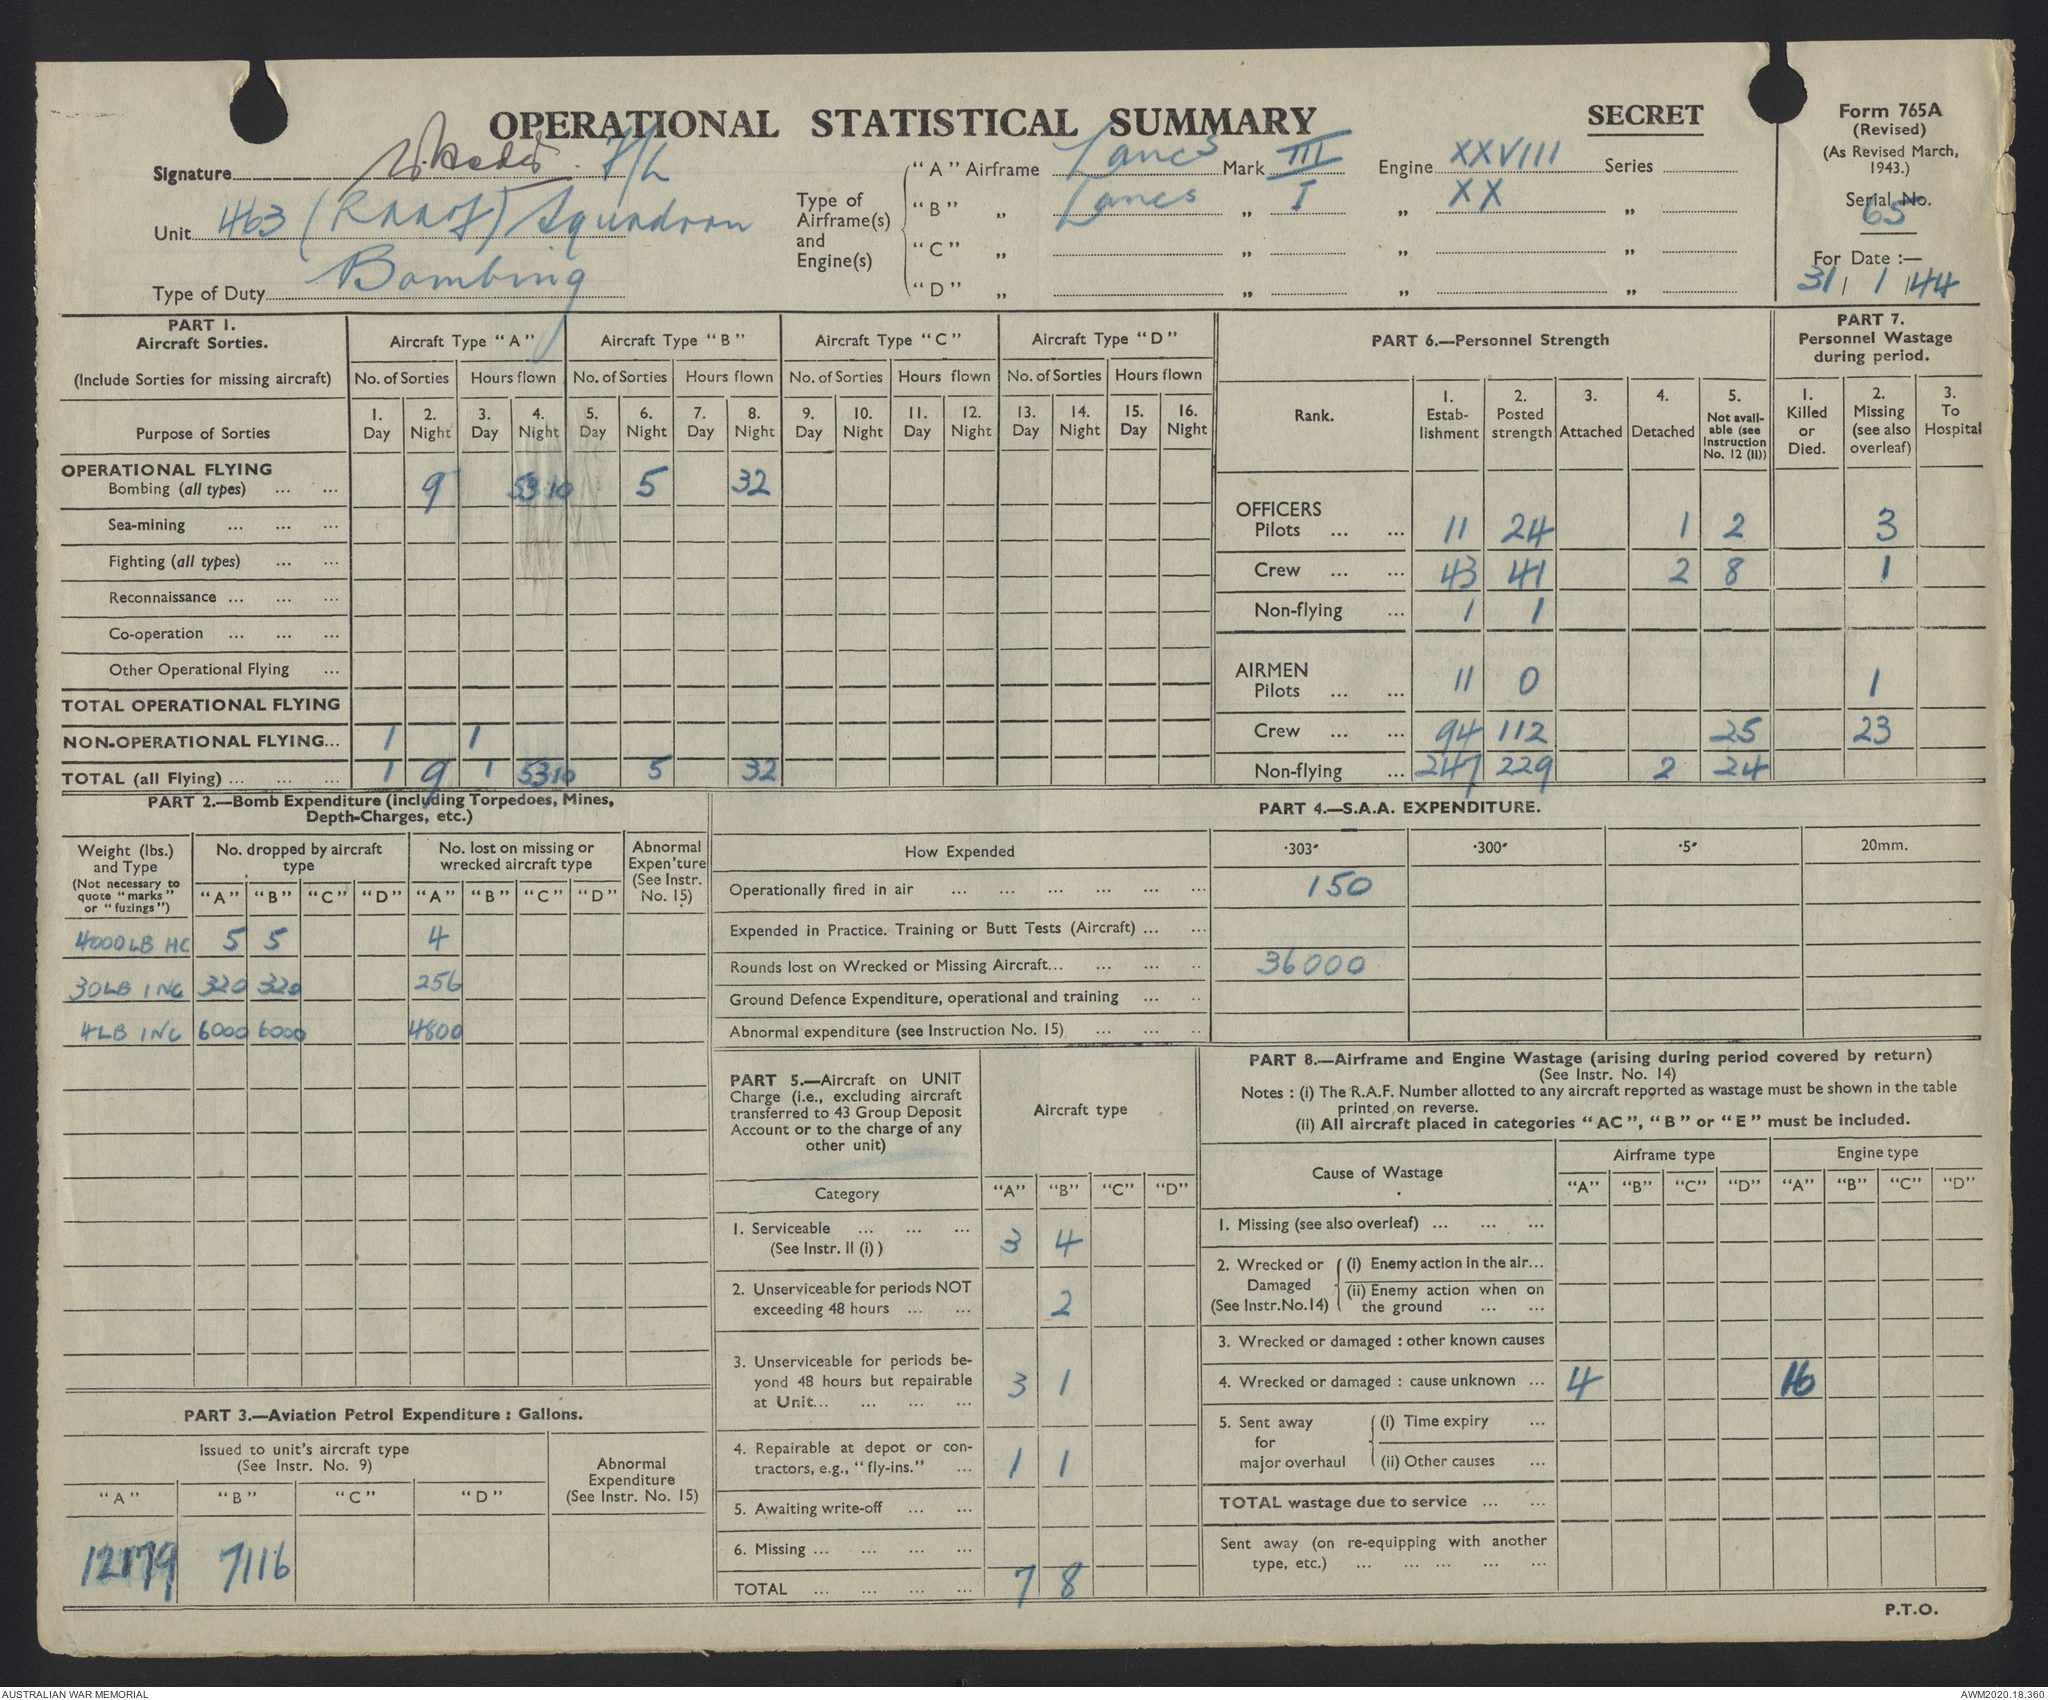 OPERATIONAL STATISTICAL SUMMARY
SECRET
Form 765A
(Revised)
(As Revised March,
1943.)
Serial No.
65
For Date :—
31 / 1 / 44
Signature F/L
Unit 463 (RAAF) Squadron
Type of Duty Bombing
Type of
Airframe(s)
and
Engine(s)
"A" Airframe Lancs Mark III Engine XXVIII Series
"B" „ Lancs „ I „ XX „
"C" „ „ „ „
"D" „ „ „ „
PART 1.
Aircraft Sorties.
(Include Sorties for missing aircraft)
Purpose of Sorties
Aircraft Type "A" Aircraft Type "B" Aircraft Type "C" Aircraft Type "D"
No. of Sorties Hours flown No. of Sorties Hours flown No. of Sorties Hours flown No. of Sorties Hours flown
1. 2. 3. 4. 5. 6. 7. 8. 9. 10. 11. 12. 13. 14. 15. 16.
Day Night Day Night Day Night Day Night Day Night Day Night Day Night Day Night
OPERATIONAL FLYING
Bombing (all types) ... ... 9 53·10 5 32
Sea-mining ... ... ...
Fighting (all types) ... ...
Reconnaissance ... ... ...
Co-operation ... ... ...
Other Operational Flying ...
TOTAL OPERATIONAL FLYING
NON-OPERATIONAL FLYING... 1 1
TOTAL (all Flying) ... ... ... 1 9 1 53·10 5 32
PART 6.—Personnel Strength
Rank.
1. Estab- lishment
2. Posted strength
3. Attached
4. Detached
5. Not avail- able (see Instruction No. 12 (II))
PART 7.
Personnel Wastage
during period.
1. Killed or Died.
2. Missing (see also overleaf)
3. To Hospital
OFFICERS
Pilots ... ... 11 24 1 2 3
Crew ... ... 43 41 2 8 1
Non-flying ... 1 1
AIRMEN
Pilots ... ... 11 0 1
Crew ... ... 94 112 25 23
Non-flying ... 247 229 2 24
PART 2.—Bomb Expenditure (including Torpedoes, Mines,
Depth-Charges, etc.)
Weight (lbs.)
and Type
(Not necessary to
quote "marks"
or "fuzings")
No. dropped by aircraft
type
No. lost on missing or
wrecked aircraft type
Abnormal
Expen'ture
(See Instr.
No. 15)
"A" "B" "C" "D" "A" "B" "C" "D"
4000LB HC 5 5 4
30LB INC 320 320 256
4LB INC 6000 6000 4800
PART 3.—Aviation Petrol Expenditure : Gallons.
Issued to unit's aircraft type
(See Instr. No. 9)
Abnormal
Expenditure
(See Instr. No. 15)
"A" "B" "C" "D"
12179 7116
PART 4.—S.A.A. EXPENDITURE.
How Expended ·303" ·300" ·5" 20mm.
Operationally fired in air ... ... ... ... ... ... 150
Expended in Practice. Training or Butt Tests (Aircraft) ... ...
Rounds lost on Wrecked or Missing Aircraft... ... ... .. 36000
Ground Defence Expenditure, operational and training ... ..
Abnormal expenditure (see Instruction No. 15) ... ... ..
PART 5.—Aircraft on UNIT
Charge (i.e., excluding aircraft
transferred to 43 Group Deposit
Account or to the charge of any
other unit)
Aircraft type
Category "A" "B" "C" "D"
1. Serviceable ... ... ...
(See Instr. II (i) ) 3 4
2. Unserviceable for periods NOT
exceeding 48 hours ... ... 2
3. Unserviceable for periods be-
yond 48 hours but repairable
at Unit... ... ... ... 3 1
4. Repairable at depot or con-
tractors, e.g., "fly-ins." ... 1 1
5. Awaiting write-off ... ...
6. Missing ... ... ... ...
TOTAL ... ... ... ... 7 8
PART 8.—Airframe and Engine Wastage (arising during period covered by return)
(See Instr. No. 14)
Notes : (i) The R.A.F. Number allotted to any aircraft reported as wastage must be shown in the table
printed on reverse.
(ii) All aircraft placed in categories "AC", "B" or "E" must be included.
Cause of Wastage
Airframe type Engine type
"A" "B" "C" "D" "A" "B" "C" "D"
1. Missing (see also overleaf) ... ... ...
2. Wrecked or Damaged (See Instr.No.14)
(i) Enemy action in the air...
(ii) Enemy action when on
the ground ... ...
3. Wrecked or damaged : other known causes
4. Wrecked or damaged : cause unknown ... 4 16
5. Sent away for major overhaul
(i) Time expiry ...
(ii) Other causes ...
TOTAL wastage due to service ... ...
Sent away (on re-equipping with another
type, etc.) ... ... ... ... ...
P.T.O.
AUSTRALIAN WAR MEMORIAL
AWM2020.18.360